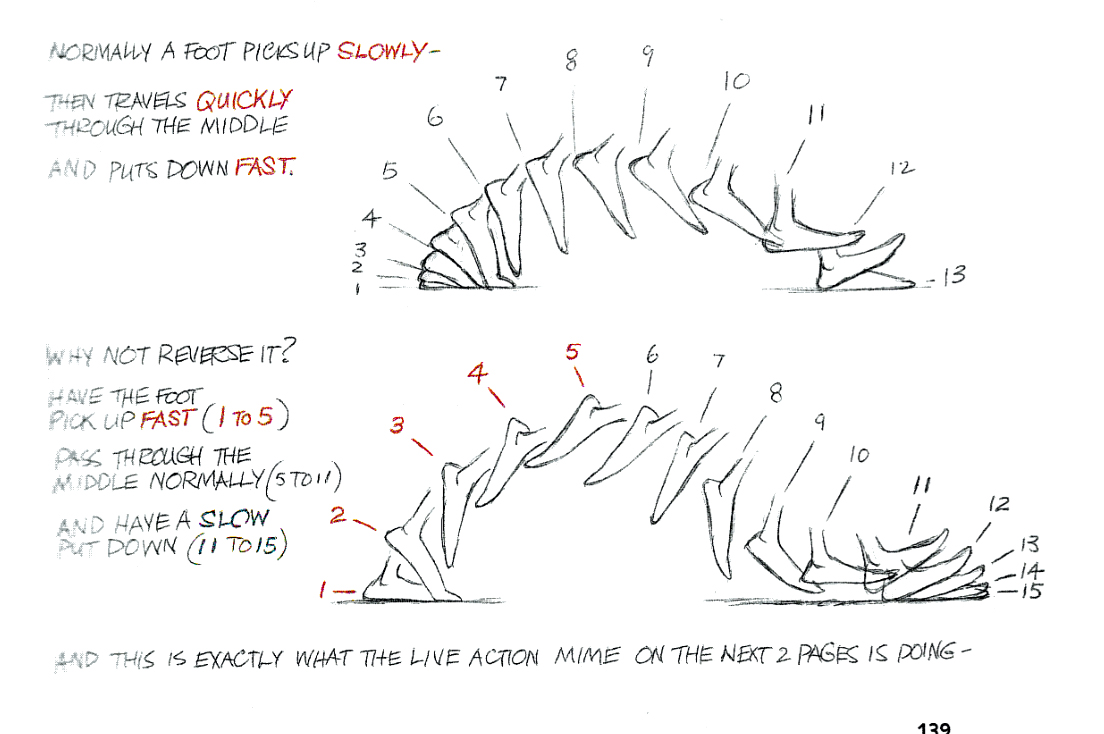 NORMALLY A FOOT PICKS UP SLOWLY-
THEN TRAVELS QUICKLY
THROUGH THE MIDDLE
AND PUTS DOWN FAST.
1
2
3
4
5
6
7
8
9
10
11
12
-13
WHY NOT REVERSE IT?
HAVE THE FOOT
PICK UP FAST (1 TO 5)
PASS THROUGH THE
MIDDLE NORMALLY (5 TO 11)
AND HAVE A SLOW
PUT DOWN (11 TO 15)
1
2
3
4
5
6
7
8
9
10
11
12
13
14
15
AND THIS IS EXACTLY WHAT THE LIVE ACTION MIME ON THE NEXT 2 PAGES IS DOING-
139